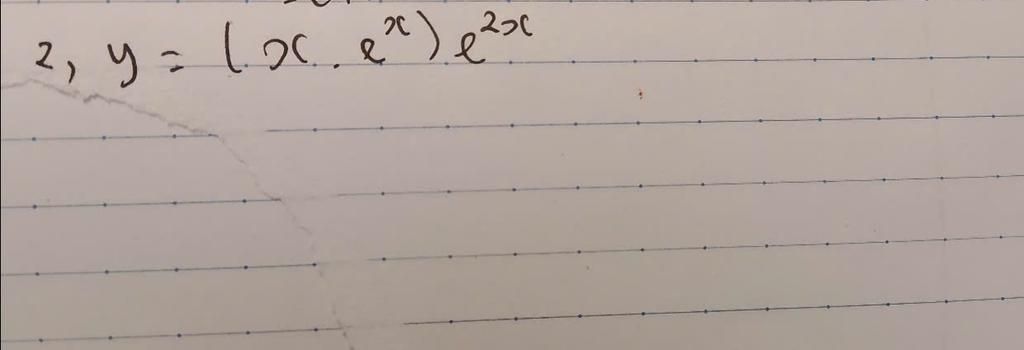 2, y = (x . e^x) e^2x